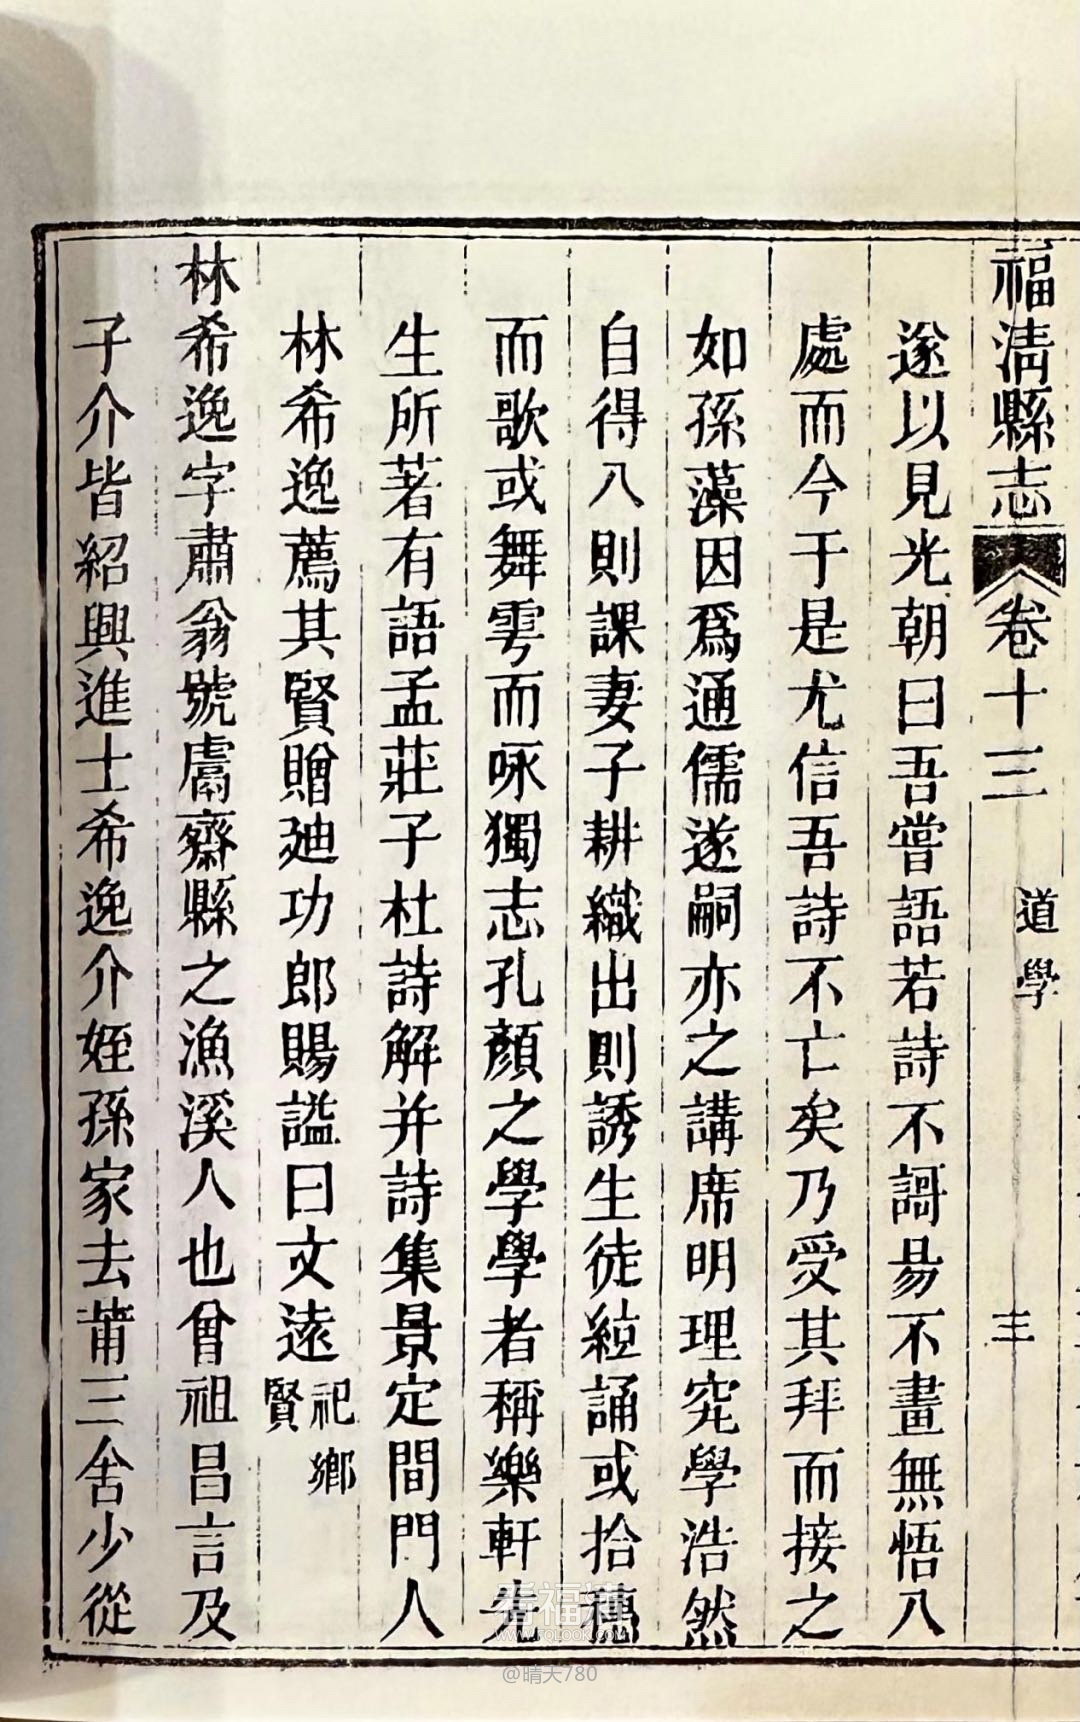 福清縣志 卷十三 道學 三
遂以見光朝曰吾嘗語若詩不謌易不畫無悟入
處而今于是尤信吾詩不亡矣乃受其拜而接之
如孫藻因爲通儒遂嗣亦之講席明理究學浩然
自得入則課妻子耕織出則誘生徒絃誦或拾穗
而歌或舞雩而咏獨志孔顏之學學者稱樂軒先
生所著有語孟莊子杜詩解并詩集景定間門人
林希逸薦其賢贈廸功郎賜謚曰文遠祀鄉賢
林希逸字肅翁號鬳齋縣之漁溪人也曾祖昌言及
子介皆紹興進士希逸介姪孫家去莆三舍少從
看福清
WWW.FQLOOK.COM
@晴天780